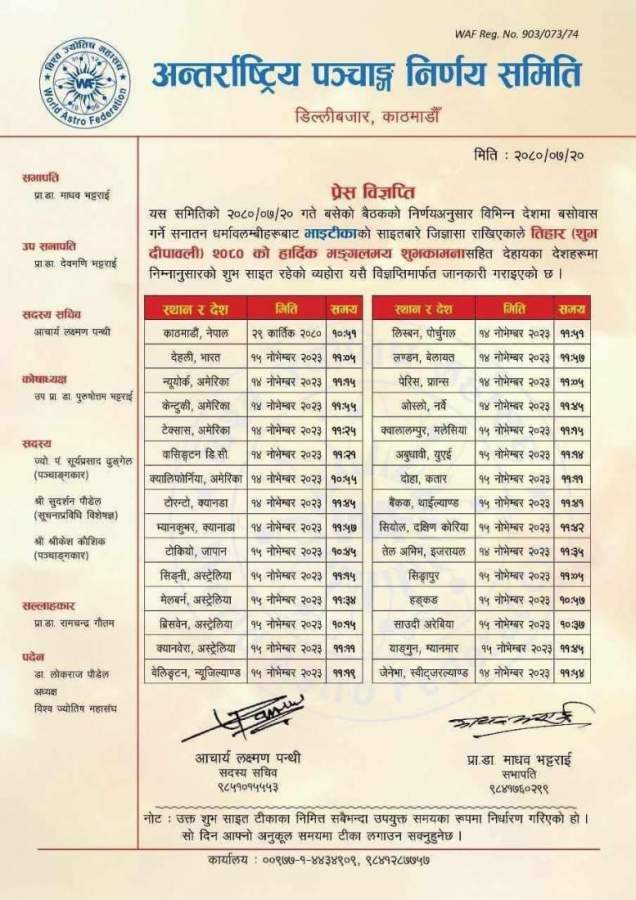 WAF Reg. No. 903/073/74
विश्व ज्योतिष महासंघ
WAF
World Astro Federation
अन्तर्राष्ट्रिय पञ्चाङ्ग निर्णय समिति
डिल्लीबजार, काठमाडौँ
मिति : २०८०/०७/२०
सभापति
प्रा.डा. माधव भट्टराई
उप सभापति
प्रा.डा. देवमणि भट्टराई
सदस्य सचिव
आचार्य लक्ष्मण पन्थी
कोषाध्यक्ष
उप प्रा. डा. पुरुषोत्तम भट्टराई
सदस्य
ज्यो. पं. सूर्यप्रसाद ढुङ्गेल
(पञ्चाङ्गकार)
श्री सुदर्शन पौडेल
(सूचनाप्रविधि विशेषज्ञ)
श्री श्रीकेश कौशिक
(पञ्चाङ्गकार)
सल्लाहकार
प्रा.डा. रामचन्द्र गौतम
पदेन
डा. लोकराज पौडेल
अध्यक्ष
विश्व ज्योतिष महासंघ
प्रेस विज्ञप्ति
यस समितिको २०८०/०७/२० गते बसेको बैठकको निर्णयअनुसार विभिन्न देशमा बसोवास
गर्ने सनातन धर्मावलम्बीहरूबाट भाइटीकाको साइतबारे जिज्ञासा राखिएकाले तिहार (शुभ
दीपावली) २०८० को हार्दिक मङ्गलमय शुभकामनासहित देहायका देशहरूमा
निम्नानुसारको शुभ साइत रहेको व्यहोरा यसै विज्ञप्तिमार्फत जानकारी गराइएको छ ।
स्थान र देश मिति समय
काठमाडौं, नेपाल २९ कार्तिक २०८० १०:५१
देहली, भारत १५ नोभेम्बर २०२३ ११:०५
न्यूयोर्क, अमेरिका १४ नोभेम्बर २०२३ ११:१५
केन्टुकी, अमेरिका १४ नोभेम्बर २०२३ ११:५५
टेक्सास, अमेरिका १४ नोभेम्बर २०२३ ११:२५
वासिङ्टन डि.सी. १४ नोभेम्बर २०२३ ११:२१
क्यालिफोर्निया, अमेरिका १४ नोभेम्बर २०२३ १०:५५
टोरन्टो, क्यानडा १४ नोभेम्बर २०२३ ११:४५
भ्यानकुभर, क्यानाडा १४ नोभेम्बर २०२३ ११:५७
टोकियो, जापान १५ नोभेम्बर २०२३ १०:४५
सिड्नी, अस्ट्रेलिया १५ नोभेम्बर २०२३ ११:१५
मेलबर्न, अस्ट्रेलिया १५ नोभेम्बर २०२३ ११:३४
ब्रिसवेन, अस्ट्रेलिया १५ नोभेम्बर २०२३ १०:१५
क्यानवेरा, अस्ट्रेलिया १५ नोभेम्बर २०२३ ११:११
वेलिङ्टन, न्यूजिल्याण्ड १५ नोभेम्बर २०२३ ११:१९
स्थान र देश मिति समय
लिस्बन, पोर्चुगल १४ नोभेम्बर २०२३ ११:५१
लण्डन, बेलायत १४ नोभेम्बर २०२३ ११:५७
पेरिस, फ्रान्स १४ नोभेम्बर २०२३ ११:०५
ओस्लो, नर्वे १४ नोभेम्बर २०२३ ११:४५
क्वालालम्पुर, मलेसिया १५ नोभेम्बर २०२३ ११:१५
अबुधावी, युएई १५ नोभेम्बर २०२३ ११:१४
दोहा, कतार १५ नोभेम्बर २०२३ ११:११
बैंकक, थाईल्याण्ड १५ नोभेम्बर २०२३ ११:४१
सियोल, दक्षिण कोरिया १५ नोभेम्बर २०२३ ११:४२
तेल अभिभ, इजरायल १४ नोभेम्बर २०२३ ११:३५
सिङ्गापुर १५ नोभेम्बर २०२३ ११:०५
हङ्कङ १५ नोभेम्बर २०२३ १०:५७
साउदी अरेबिया १५ नोभेम्बर २०२३ १०:३७
याङ्गुन, म्यानमार १५ नोभेम्बर २०२३ ११:४५
जेनेभा, स्वीट्जरल्याण्ड १४ नोभेम्बर २०२३ ११:५४
आचार्य लक्ष्मण पन्थी
सदस्य सचिव
९८५१०१५५५३
प्रा.डा. माधव भट्टराई
सभापति
९८४१७६०२९९
नोट : उक्त शुभ साइत टीकाका निमित्त सबैभन्दा उपयुक्त समयका रूपमा निर्धारण गरिएको हो ।
सो दिन आफ्नो अनुकूल समयमा टीका लगाउन सक्नुहुनेछ ।
कार्यालय : ००९७७-१-४४३४९०९, ९८४१२८७७५७